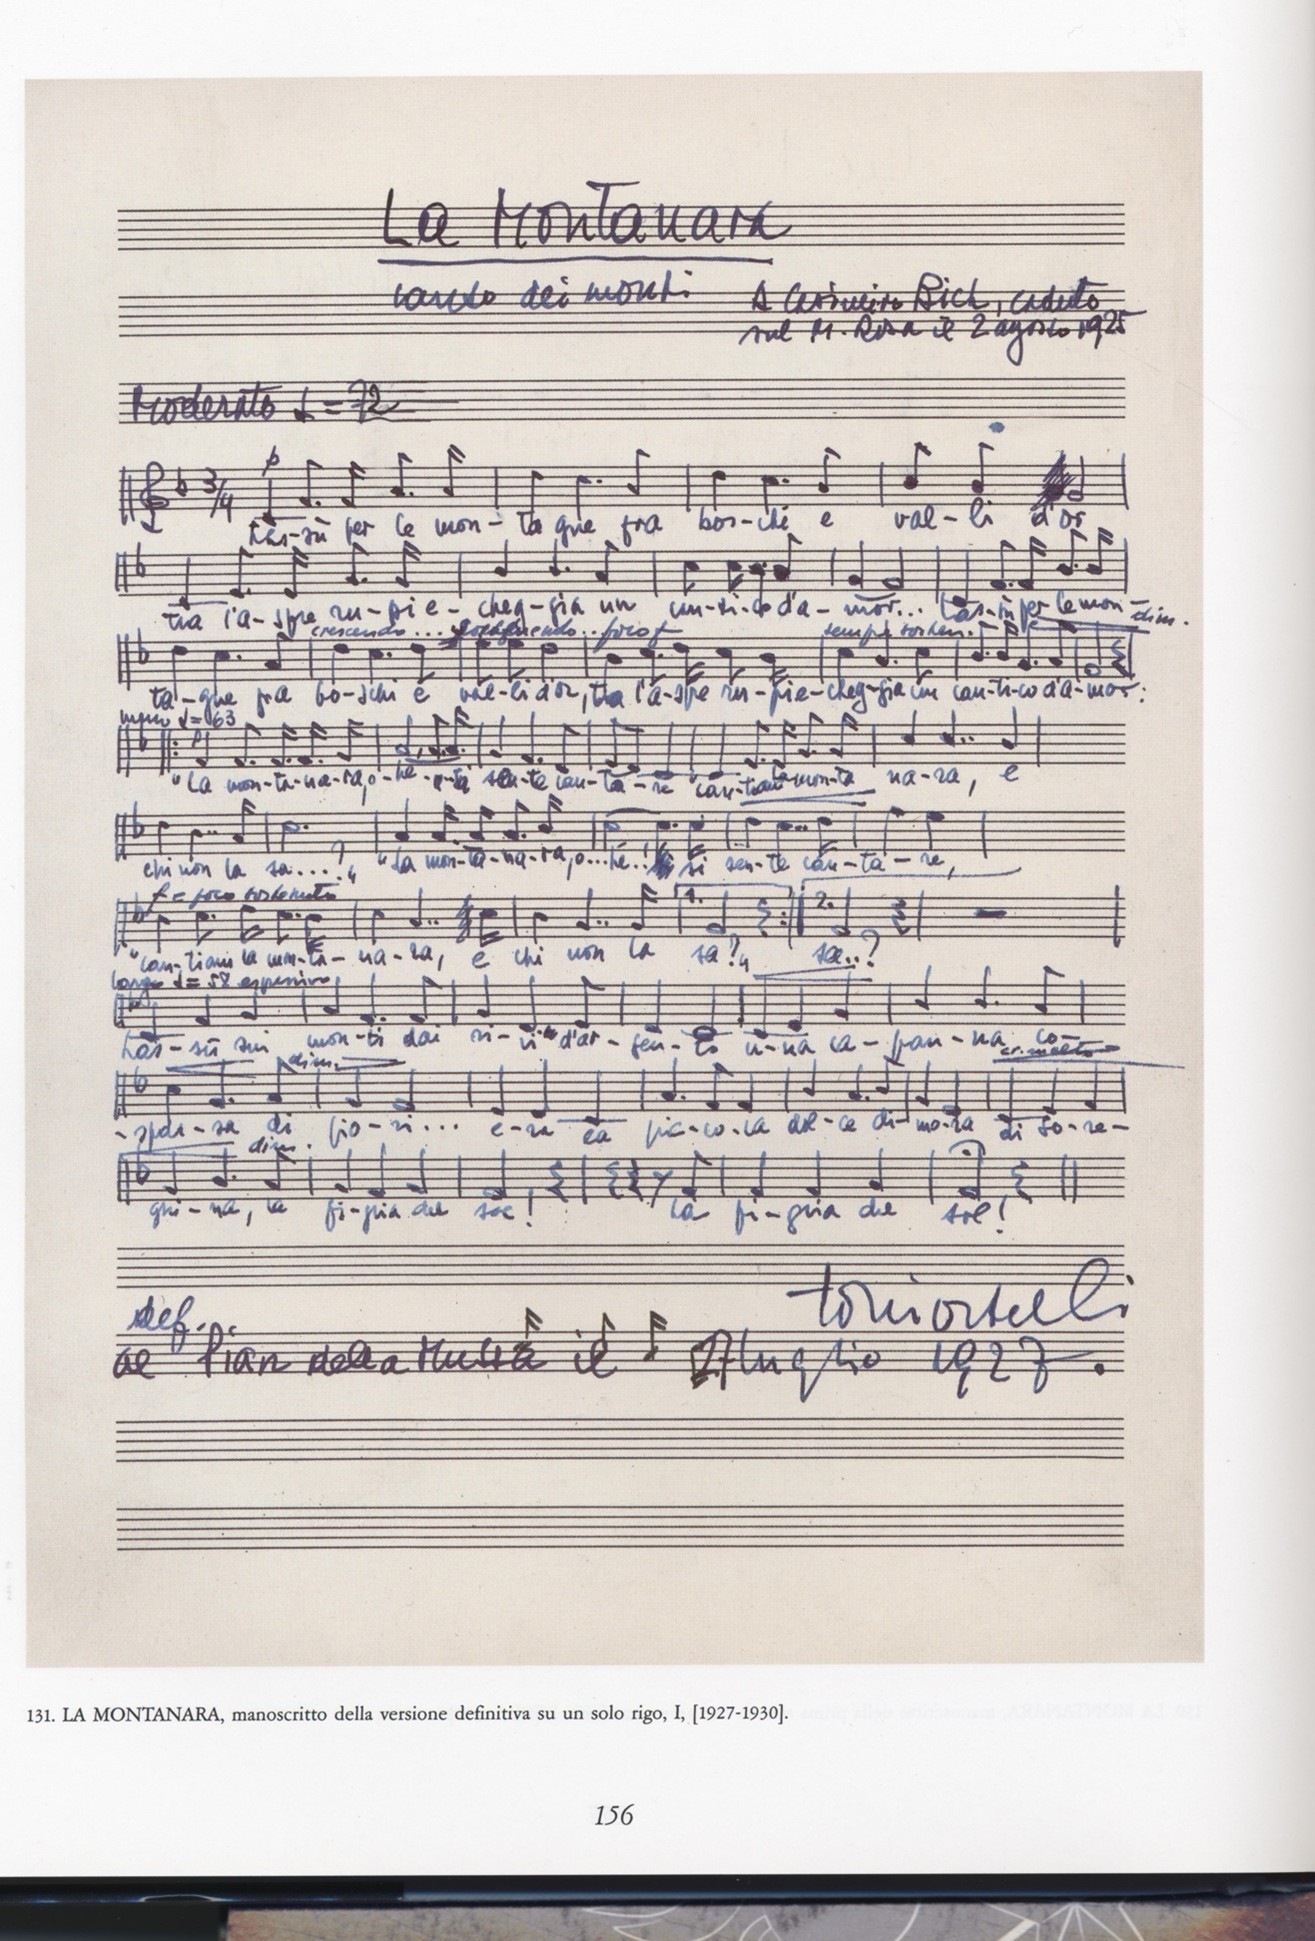 La Montanara
canto dei monti
A Casimiro Bich, caduto
sul M. Rosa il 2 agosto 1925
Moderato ♩ = 72
p
3/4
Las-sù per le mon-ta gne fra bos-chi e val-li d'or
tra l'a-spre ru-pi e-cheg-gia un can-ti-co d'a-mor... Las-sù per le mon-
dim.
crescendo... poco f
sempre sosten.
ta-gne fra bo-schi e val-li d'or, tra l'a-spre ru-pi e-cheg-gia un can-ti-co d'a-mor:
meno ♩ = 63
"La mon-ta-na-ra, o-hè si sen-te can-ta-re "can-tiam la mon-ta na-ra, e
chi non la sa....?" "La mon-ta-na-ra, o...hè..! si sen-te can-ta-re,
f = poco sostenuto
"can-tiam la mon-ta-na-ra, e chi non la sa?" sa..?
1. 2.
largo ♩ = 58 espressivo
Las-sù sui mon-ti dai ri-vi d'ar-gen-to u-na ca-pan-na co-
dim.
-spar-sa di fio-ri... e-ra la pic-co-la dol-ce di-mo-ra di So-re-
dim.
ghi-na, la fi-glia del sol! La fi-glia del sol!
toni ortelli
def.
al Pian della Mussa il 27 luglio 1927.
131. LA MONTANARA, manoscritto della versione definitiva su un solo rigo, I, [1927-1930].
156